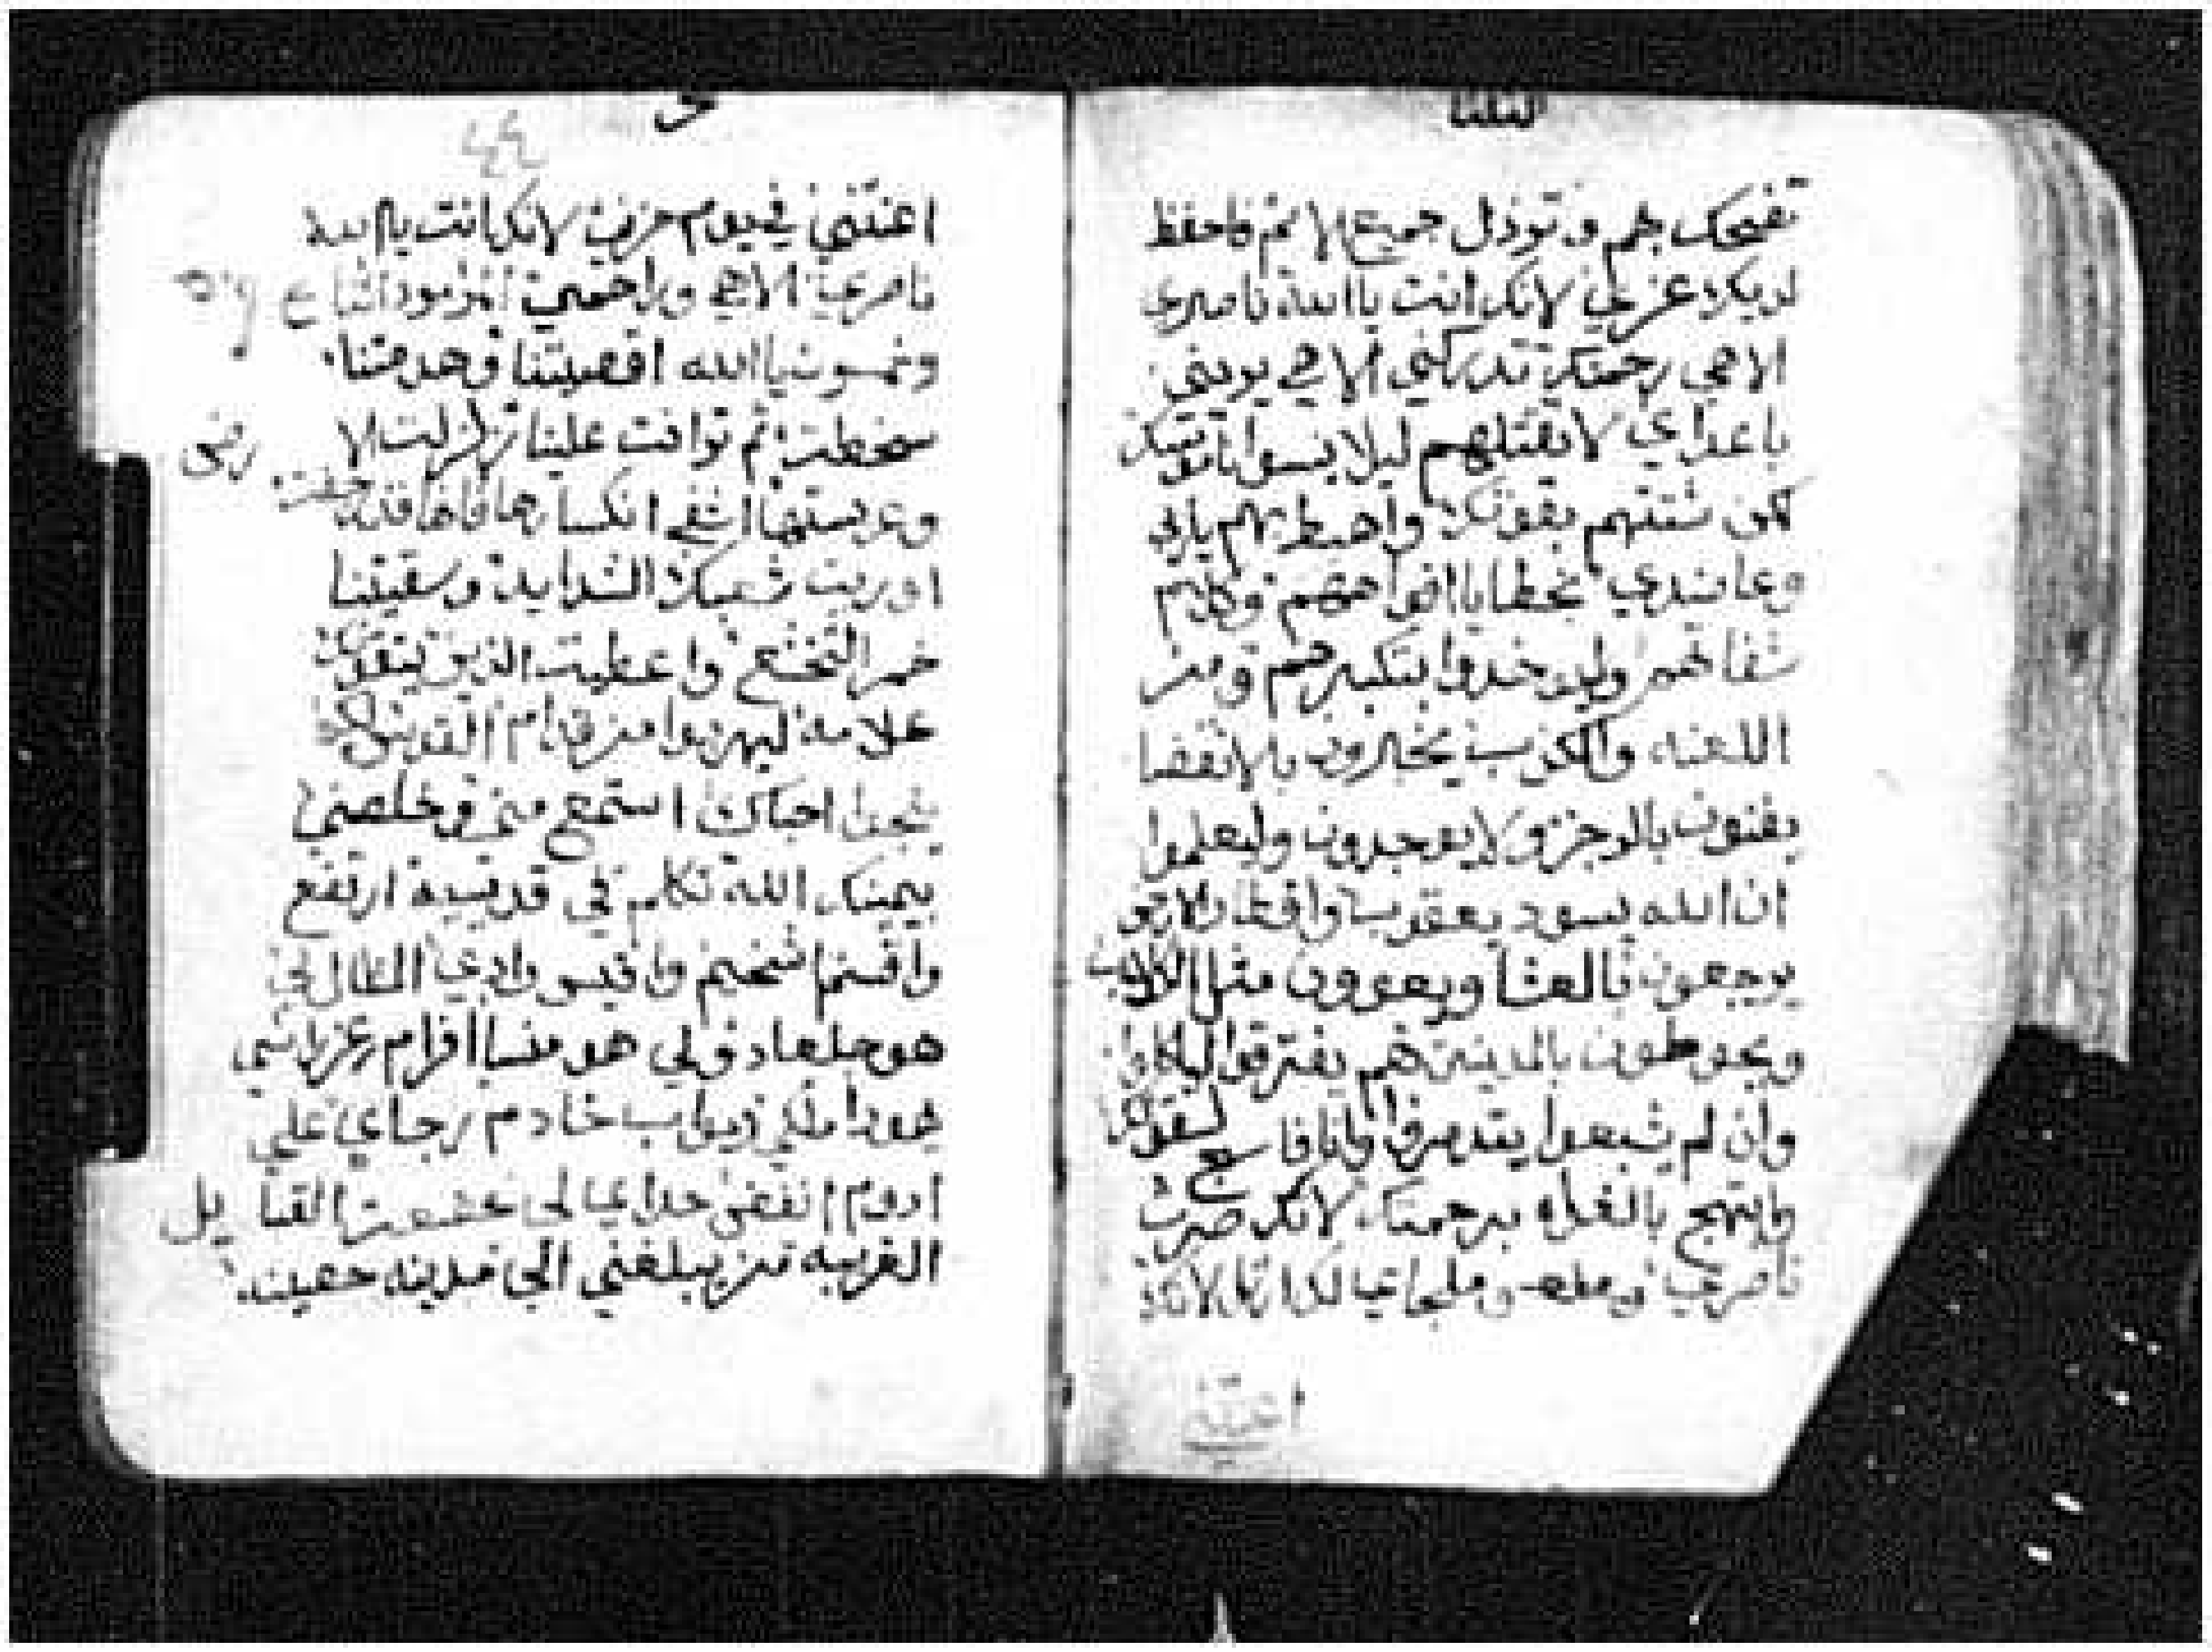 تضحك بهم وتوذل جميع الامم فاحفظ
لديك عزي لانك انت يا الله ناصري
الاهي رحمتك تدركني الاهي يريني
باعداي لا تقتلهم ليلا ينسوا
لكن شتتهم بقوتك واهبط بهم يارب
وعاضدي بخطايا افواههم وكلام
شفاههم وليوخدوا بتكبرهم ومن
اللعنه والكذب يخبرون بالانقضا
يفنون بالرجز ولا يوجدون وليعلموا
ان الله يسود يعقوب واقطار الارض
يرجعون بالعشا ويعوون مثل الكلاب
ويحوطون بالمدينة هم يفترقوا لياكلوا
وان لم يشبعوا يتدمروا وانا فاسبح لقوتك
وابتهج بالغداه برحمتك لانك صرت
ناصري وملجاي لك ارتل لانك
اعنتني
٤٤
اعنتني في يوم حزني لانك انت يا الله
ناصري الاهي وراحمي المزمور التاسع
وخمسون يا الله اقصيتنا وهدمتنا
سخطت ثم ترافت علينا زلزلت الارض
وعربستها اشفي انكسارها فانها قد رجفت
اوريت شعبك الشدايد وسقيتنا
خمر التخشع واعطيت الذين يتقونك
علامة ليهربوا من قدام القوس لكيما
ينجوا احباك استمع مني وخلصني
بيمينك الله تكلم في قدسه ارتفع
واقسم شخيم واقيس وادي المظال لي
هو جلعاد ولي هو منسا افرام عز راسي
يهودا ملكي ومواب خادم رجاي علي
ادوم انفض حداي لي خضعت القبايل
الغريبه من يبلغني الي مدينه حصينه